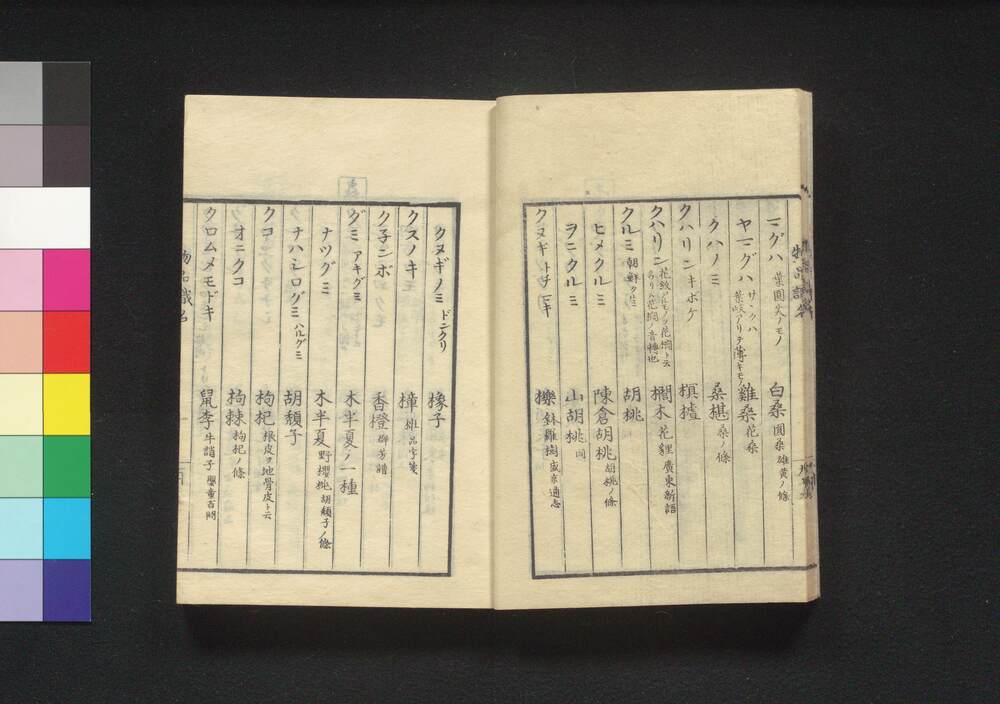 マグハ 葉圓尖ノモノ 白桑 圓桑 雄黄ノ條
ヤマグハ サヽクハ 葉岐アリテ薄キモノ 雞桑 花桑
クハノミ 桑椹 桑ノ條
クハリン キボケ 榠樝
クハリン 花紋アルモノヲ花櫚ト云 櫚木 花貍 廣東新語
クルミ 朝鮮クルミ 胡桃
ヒメクルミ 陳倉胡桃 胡桃ノ條
ヲニクルミ 山胡桃 同
クヌギ トチマキ 櫟 鉢雞樹 盛京通志
クヌギノミ ドングリ 橡子
クスノキ 樟 排品字箋
ク子ンボ 香橙 群芳譜
グミ アキグミ 木半夏ノ一種
ナツグミ 木半夏 野櫻桃 胡頽子ノ條
ナハシログミ ハルグミ 胡頽子
クコ 枸杞 根皮ヲ地骨皮ト云
オニクコ 枸棘 枸杞ノ條
クロムメモドキ 鼠李 牛諸子 學童百問
物品識名